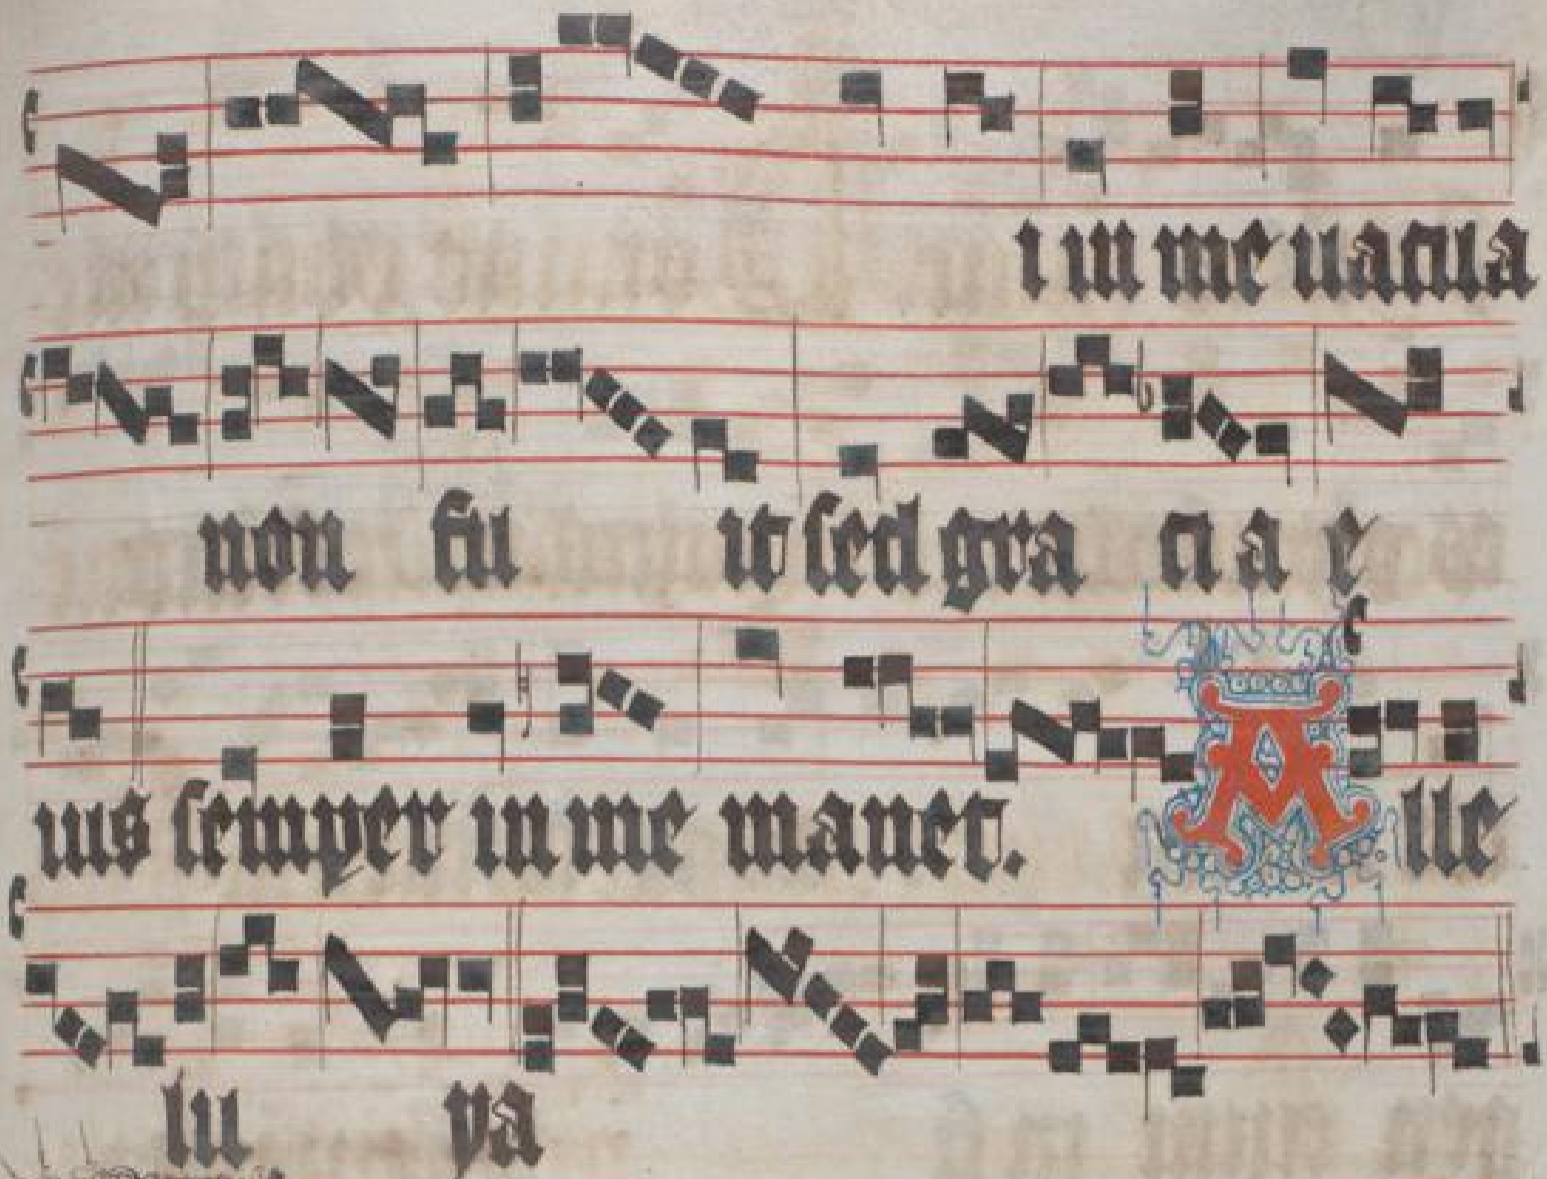 i in me uacua
non fu it sed gra ci a e
ius semper in me manet. Alle
lu ya